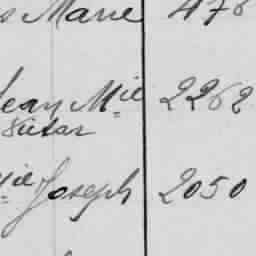 s Marie 478
Jean M.ie 2262
Victor
ie Joseph 2050